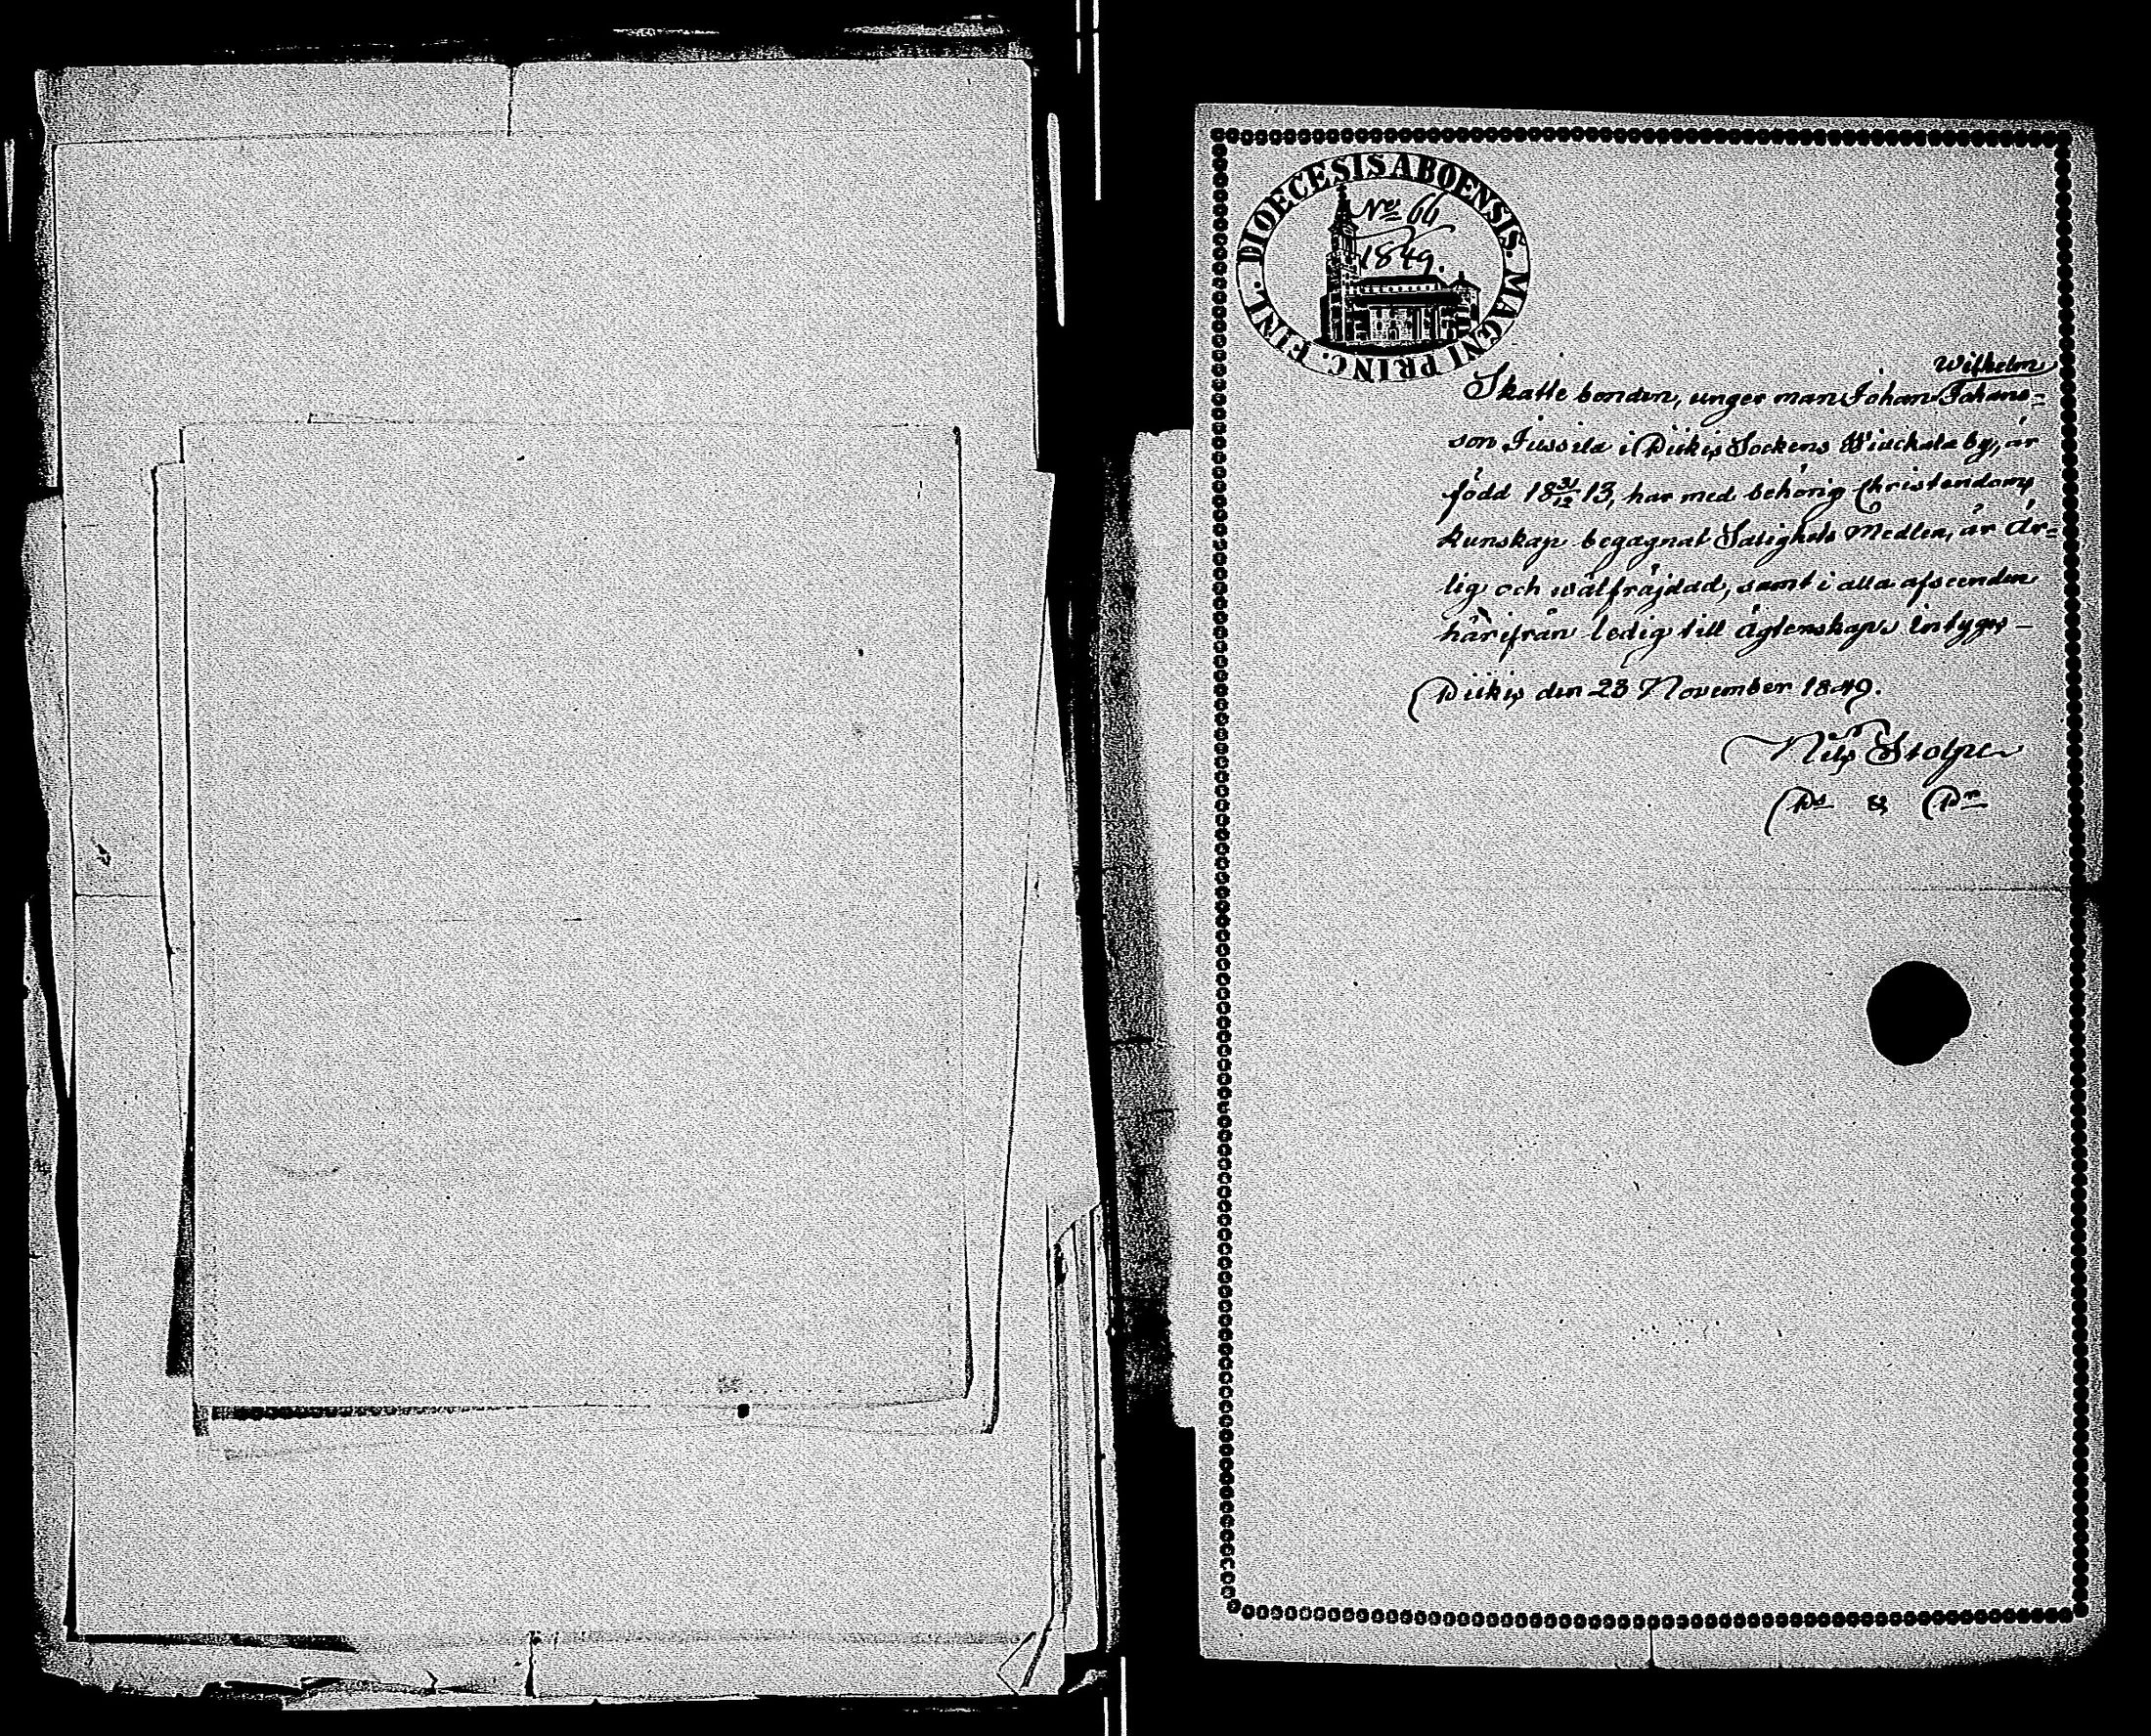 DIOECESIS ABOENSIS. MAGNI PRINC. FINL.
No 66
1849.
Wilhelm
Skatte bonden, unger man Johan Johans-
son Jussila i Piikis Sockens Wiuckala by, är
född 18 31/12 13, har med behörig Christendoms
kunskap begagnat Salighets Medlen, är är-
lig och wälfräjdad, samt i alla afseenden
härifrån ledig till ägtenskaps intyges-
Piikis den 23 November 1849.
Nils Stolpe
Ps & Pr